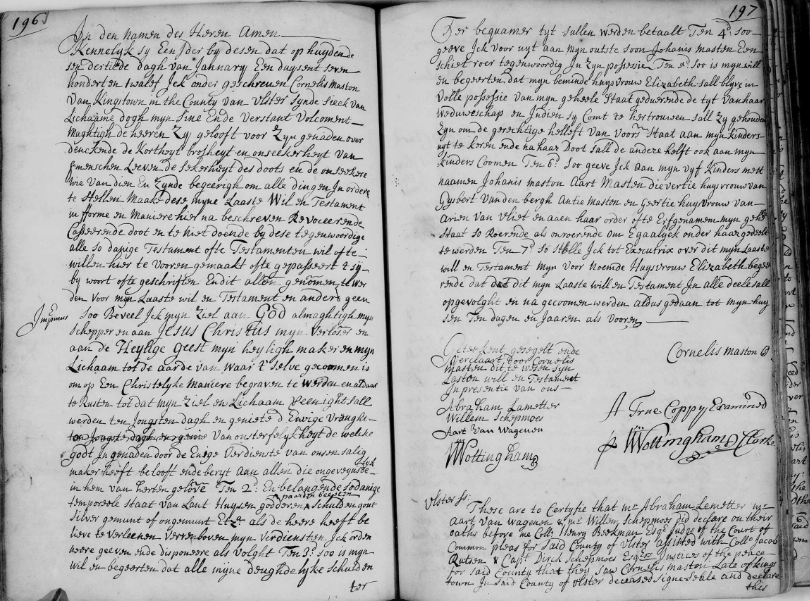 196
In den Namen des Heren Amen
Kennelyk sy Een Ider by desen dat op huyden de
dertiede dagh van January Een duysent seven
hondert en twalef Ick onder geschreven Cornelis Maston
van Kingstown in the County van Ulster Synde Sieck van
Lichaame dogh myn Sine En de Verstant Volcomen
Maghtigh de heeren zy gelooft voor zyn genaden over
denckende de Kortheyt brosheyt en onseekerheyt van
s'menschen Leeven de sekerheyt des doots en de onsekere
uire van dien En Zynde begeerigh om alle dingen In order
te stellen Maake dese myne Laaste Wil en Testament
in forme en Maniere hier na beschreven Revoceerende
Casseerende doot en te niet doende by dese tegenwoordige
alle so danige Testament ofte Testamenten wil ofte
willen hier te Vooren gemaakt ofte gepasseert t zy
by woort ofte geschriften En dit allen genomen te wer
den voor myn Laaste wil en Testament en anders geen
Imprimis
Soo Beveel Ick myn ziel aan GOD almaghtigh myn
schepper en aan JESUS CHRISTUS myn Verloser en
aan de Heylige Geest myn heyligh maker en myn
Lichaam tot de aarde van waar t selve gecoomen is
om op Een Christelyke Maniere begraven te Werden en aldaar
te Rusten tot dat myn ziel en Lichaam Vereenight sall
werden ten Jongsten dagh en genieten d Ewige Vreught
van onsterfelyckheyt de welcke
Godt In genaden door de Enige Verdienste van onsen salig
maker heeft belooft ende bereyt aan allen die ongeveynsde
lick
in hem van herten geloove Ten 2d. En belangende sodanige
temporeele staat van Lant Huysen goederen Schulden gout
paarden beesten
Silver gemunt of ongemunt Etca als de heere heeft be
lieve te Verleenen Verre boven myn Verdiensten Ick orden
neere geeven ende disponeere als Volght Ten 3d. soo is myn
wil en begeerten dat alle myne Deughdelyke schulden
ter
197
Ter bequamer tyt sullen werden betaalt Ten 4d. soo
geeve Ick voor uyt aan myn outste soon Johanis masten Een
schiet roer tegenwoordig In zyn possessie Ten 5d. soo is myn will
en begeerten dat myn beminde huysvrouw Elizabeth sall blyve in
Volle possessie van myn geheele Staat geduerende de tyt van haar
weduweschap en Indien sy Comt te hertrouwen sall zy gehouden
Zyn om de gerechtige helleft van voorn Staat aan myn Kinders
uyt te keren ende na haar Doot sall de andere helft ook aan myn
Kinders Coomen Ten 6d. Soo geeve Ick aan myn vyf Kinders mett
naamen Johanis maston Aart Masten divertie huysvrouw van
Gysbert Vanden bergh Antie Maston en Geertie huysvrouw van
Arien van Vliet en aaen haar order ofte Erfgenamen myn gehele
Staat so Roerende als onroerende om Egaalyck onder haar gedeelt
te werden Ten 7d. so Stelle Ick tot Executrix over dit myn Laaste
will en Testament myn Voor Noemde Huysvrouw Elizabeth begee
rende dat dit myn Laaste will en Testament In alle deele sall
opgevolght en na gecoomen werden aldus gedaan tot myn huy
sen Ten dagen en Jaaren als Vooren
Getekent gesegelt ende
verclaart door Cornelis
Masten dit te wesen syn
Lasten will en Testament
In presentie van ons
Cornelis Maston
Abraham Lametter
Willem Schepmoes
Aart Van Wagenen
WNottingham
A True Coppy Examined
WNottingham Clerk
Ulster ss:
These are to Certyfie that mr Abraham Lemetter mr
aart van Wagenen & mr Willem Schepmoes did declare on their
oaths before me Coll. Henry Beekman Esqr Judge of the Court of
Common pleas for said County of Ulster assisted with Coll. Jacob
Rutsen & Capt Dirck Schepmoes Esqrs Justices of the peace
for said County that they saw Cornelis Maston Late of Kings
town In said County of Ulster deceased signe seale and declare
this